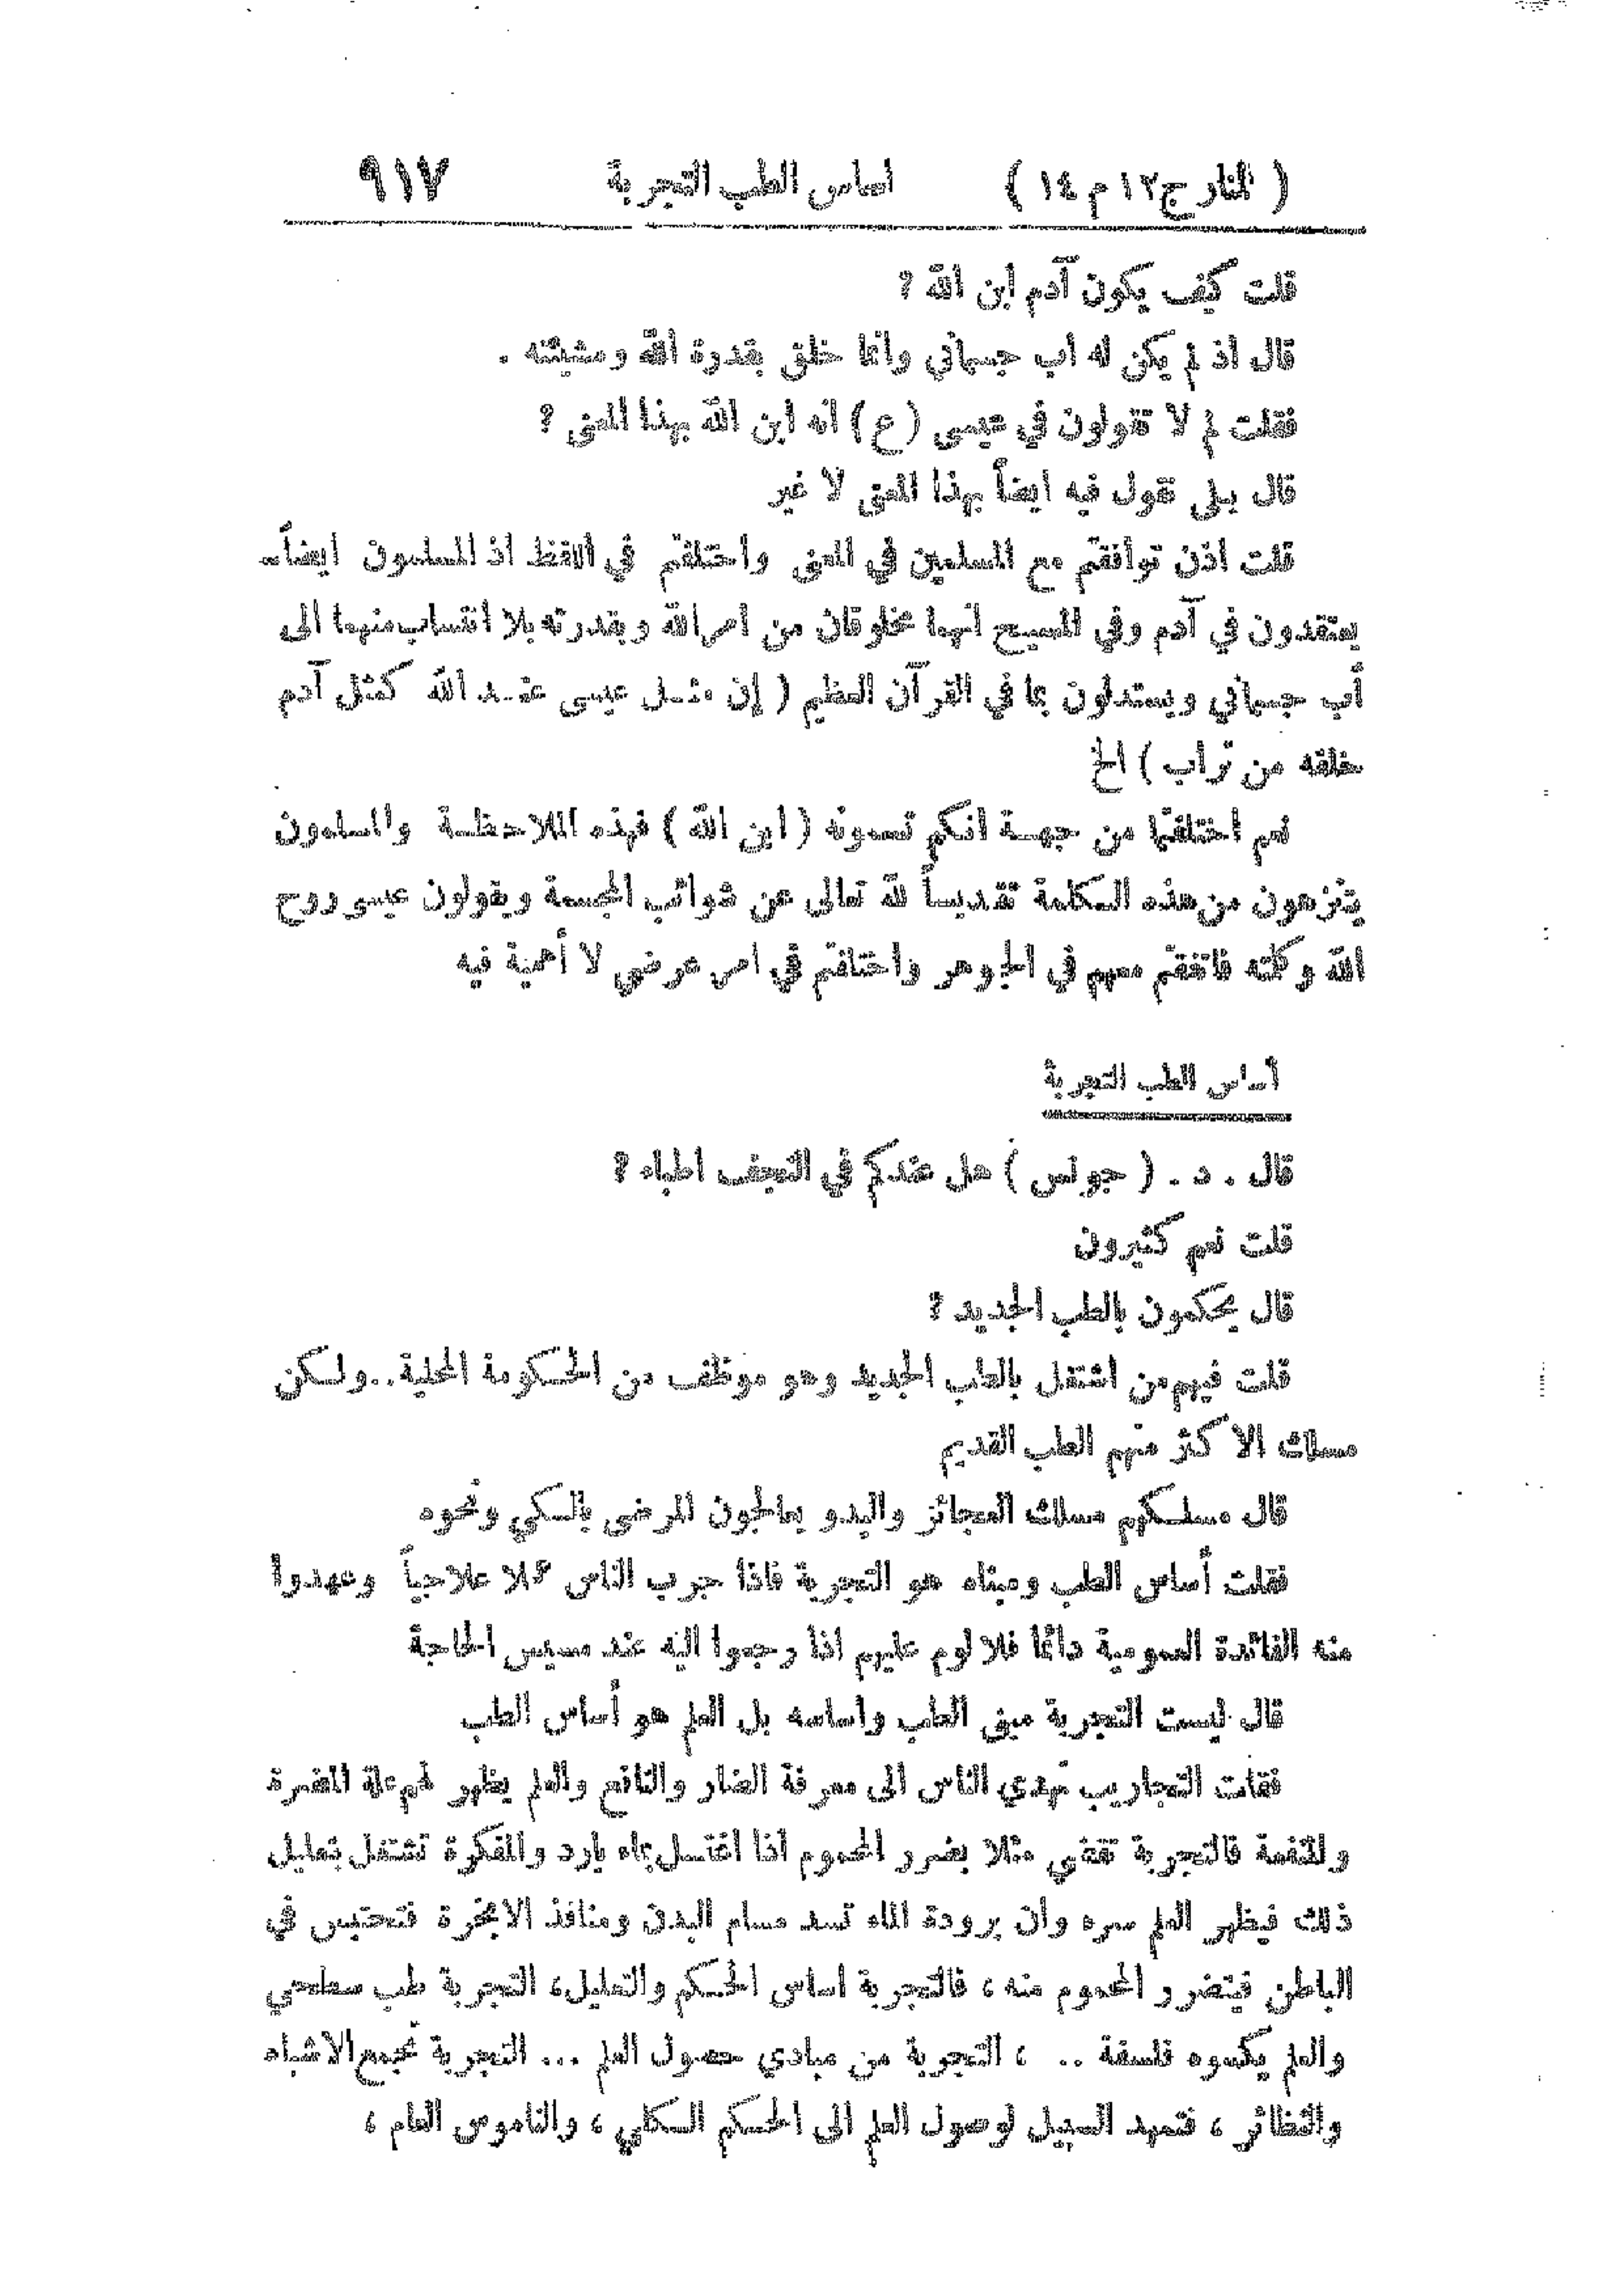 ( المنار ج١٢ م ١٤ ) أساس الطب التجربة ٩١٧
قلت كيف يكون آدم ابن الله ?
قال اذ لم يكن له اب جسماني وانما خلق بقدرة الله ومشيئته .
فقلت لم لا تقولون في عيسى (ع) انه ابن الله بهذا المعنى ?
قال بلى نقول فيه ايضاً بهذا المعنى لا غير
قلت اذن توافقتم مع المسلمين في المعنى واختلفتم في اللفظ اذ المسلمون ايضاً
يعتقدون في آدم وفي المسيح انهما مخلوقان من امر الله وبقدرته بلا انتساب منهما الى
أب جسماني ويستدلون بما في القرآن العظيم ( إن مثـل عيسى عنـد الله كمثل آدم
خلقه من تراب ) الخ
نعم اختلفتما من جهـة انكم تسمونه ( ابن الله ) فهذه الملاحظـة والمسلمون
يتنزهون من هذه الكلمة تقديساً لله تعالى عن شوائب المجسمة ويقولون عيسى روح
الله وكلمته فاتفقتم معهم في الجوهر واختلفتم في امر عرضي لا أهمية فيه
أساس الطب التجربة
قال . د . ( جونس ) هل عندكم في النجف اطباء ?
قلت نعم كثيرون
قال يحكمون بالطب الجديد ?
قلت فيهم من اشتغل بالطب الجديد وهو موظف من الحكومة المحلية .. ولكن
مسلك الاكثر منهم الطب القديم
قال مسلكهم مسلك العجائز والبدو يعالجون المرضى بالكي ونحوه
فقلت أساس الطب ومبناه هو التجربة فاذا جرب الناس عملا علاجياً وعهدوا
منه الفائدة العمومية دائما فلا لوم عليهم اذا رجعوا اليه عند مسيس الحاجة
قال ليست التجربة مبنى الطب واساسه بل العلم هو أساس الطب
فقلت التجاريب تهدي الناس الى معرفة الضار والنافع والعلم يظهر لهم علة المضرة
والمنفعة فالتجربة تقضي مثلا بضرر المحموم اذا اغتسل بماء بارد والفكرة تشتغل بتعليل
ذلك فيظهر العلم سره وان برودة الماء تسد مسام البدن ومنافذ الابخرة فتحتبس في
الباطن فيتضرر المحموم منه ، فالتجربة اساس الحكم والتعليل، التجربة طب سطحي
والعلم يكسوه فلسفة .. ، التجربة من مبادي حصول العلم ... التجربة تجمع الاشباه
والنظائر ، فتمهد السبيل لوصول العلم الى الحكم الكلي ، والناموس العام ،